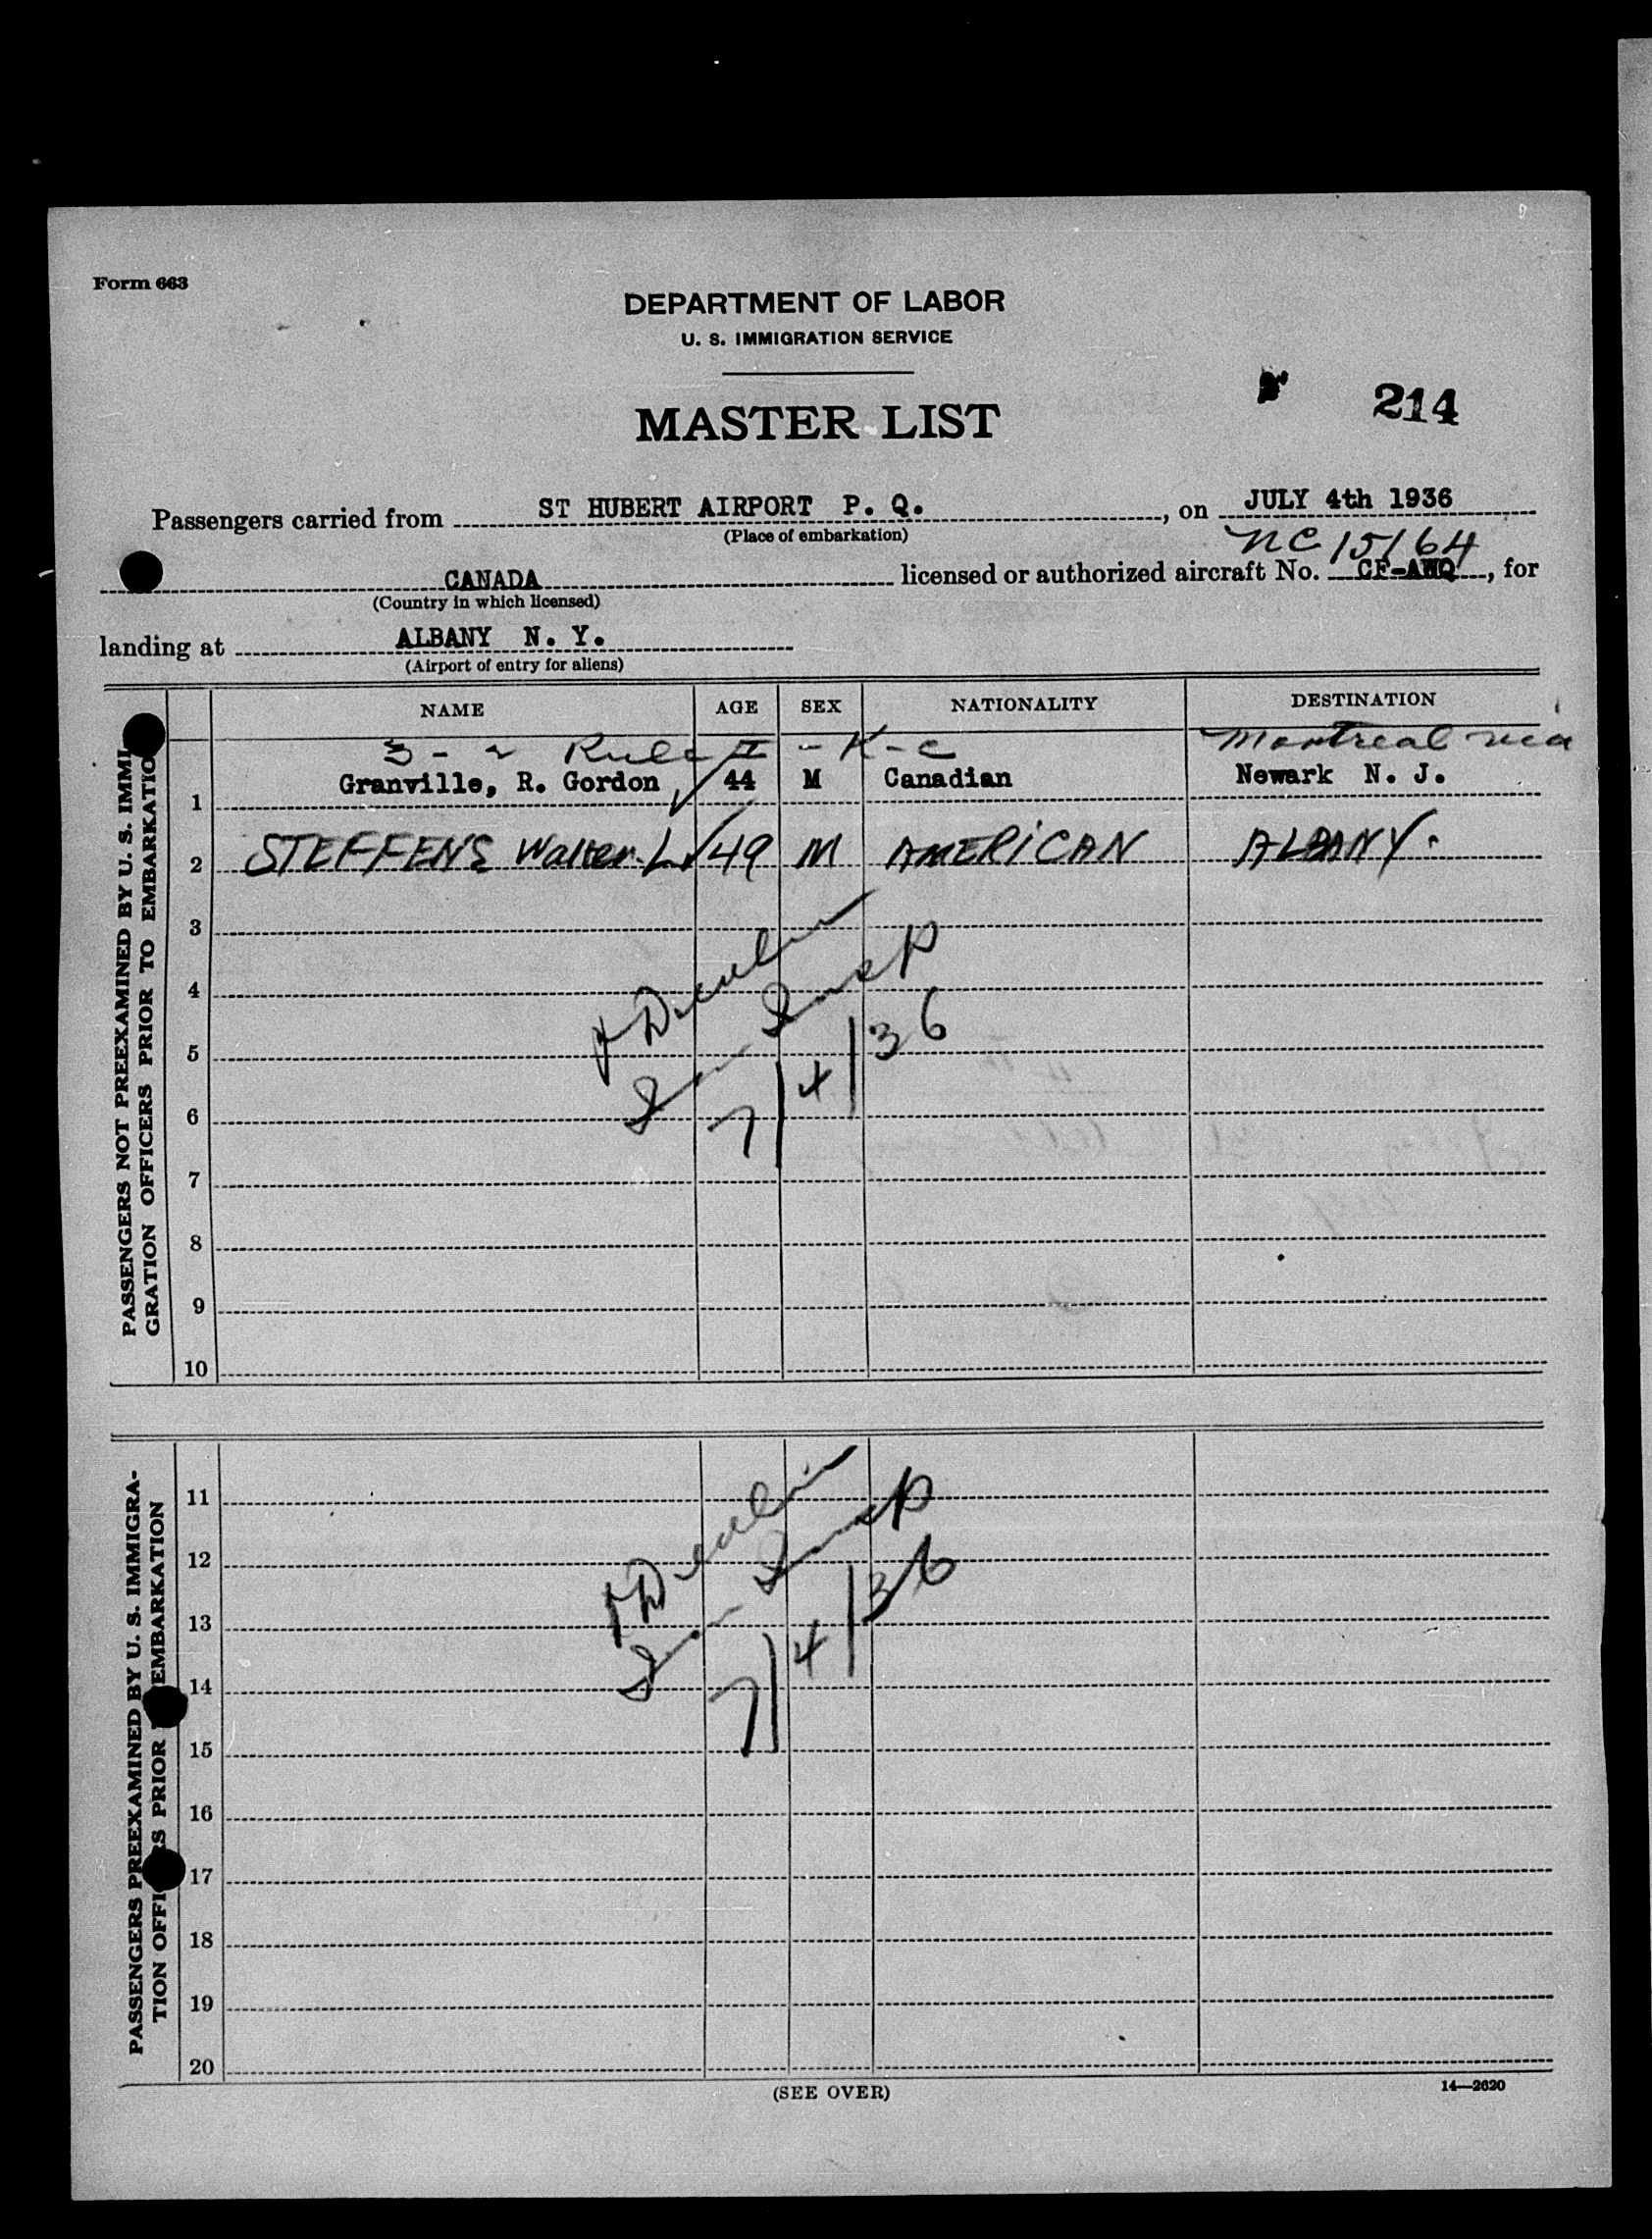 Form 663
DEPARTMENT OF LABOR
U. S. IMMIGRATION SERVICE
MASTER LIST
214
Passengers carried from ST HUBERT AIRPORT P. Q., on JULY 4th 1936
(Place of embarkation)
NC 15164
CANADA licensed or authorized aircraft No. CF-AWQ, for
(Country in which licensed)
landing at ALBANY N. Y.
(Airport of entry for aliens)
NAME AGE SEX NATIONALITY DESTINATION
3 - 2 Rule II - K - C Montreal via
1 Granville, R. Gordon 44 M Canadian Newark N. J.
2 STEFFENS Walter L 49 M AMERICAN ALBANY.
3
4
5
6
7
8
9
10
7/4/36
PASSENGERS NOT PREEXAMINED BY U. S. IMMI
GRATION OFFICERS PRIOR TO EMBARKATIO
11
12
13
14
15
16
17
18
19
20
7/4/36
PASSENGERS PREEXAMINED BY U. S. IMMIGRA-
TION OFFI RS PRIOR EMBARKATION
(SEE OVER)
14—2620